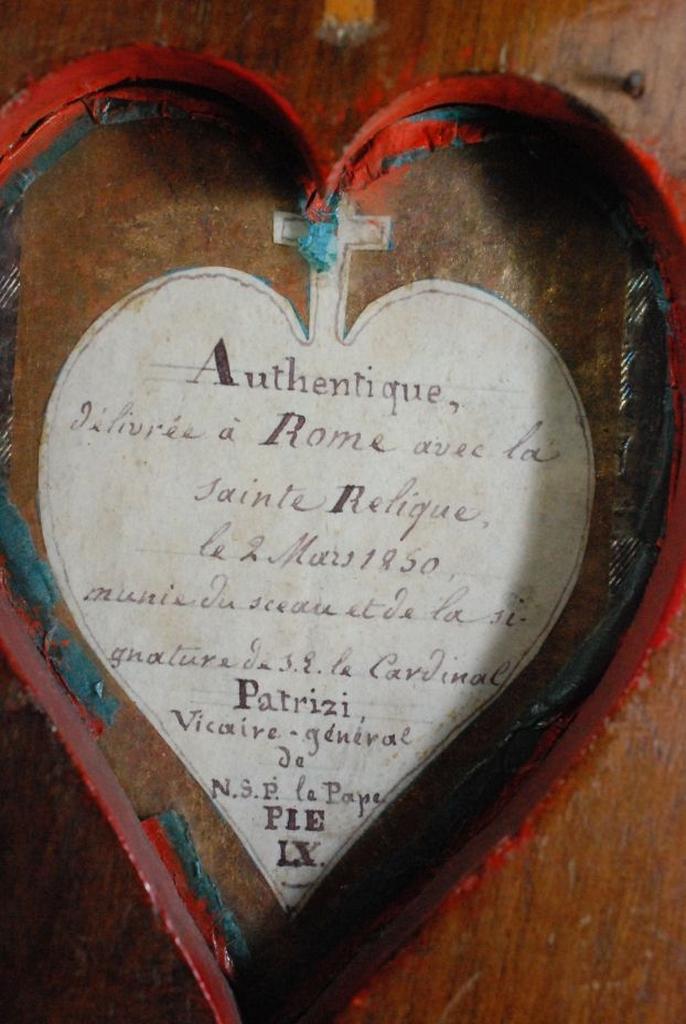 Authentique,
délivrée à Rome avec la
sainte Relique,
le 2 Mars 1850,
munie du sceau et de la si-
gnature de S.E. le Cardinal
Patrizi
Vicaire-général
de
N.S.P. le Pape
PIE
IX.